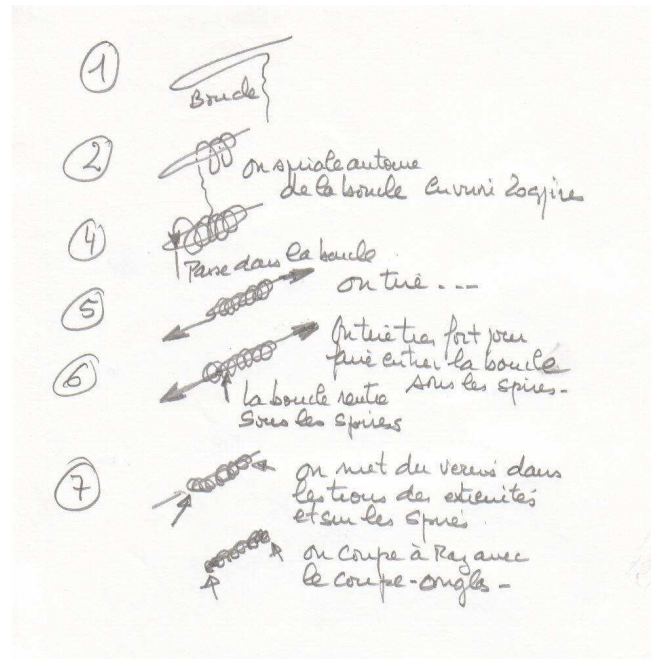 1
Boucle
2
on spirale autour
de la boucle environ 20 spires
4
Passe dans la boucle
5
on tire ...
6
on tire tres fort pour
faire entrer la boucle
sous les spires -
la boucle rentre
sous les spires
7
on met du vernis dans
les trous des extremités
et sur les spires
on coupe à Raz avec
le coupe-ongles -